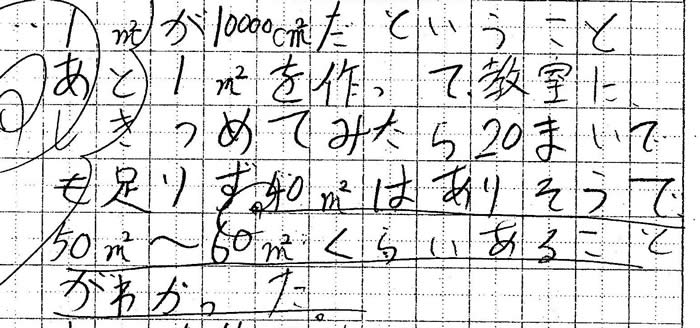 1㎡が10000c㎡だということ
あと1㎡を作って、教室に、
しきつめてみたら20まいで
も足りず、40㎡はありそうで、
50㎡〜60㎡くらいあること
がわかった。